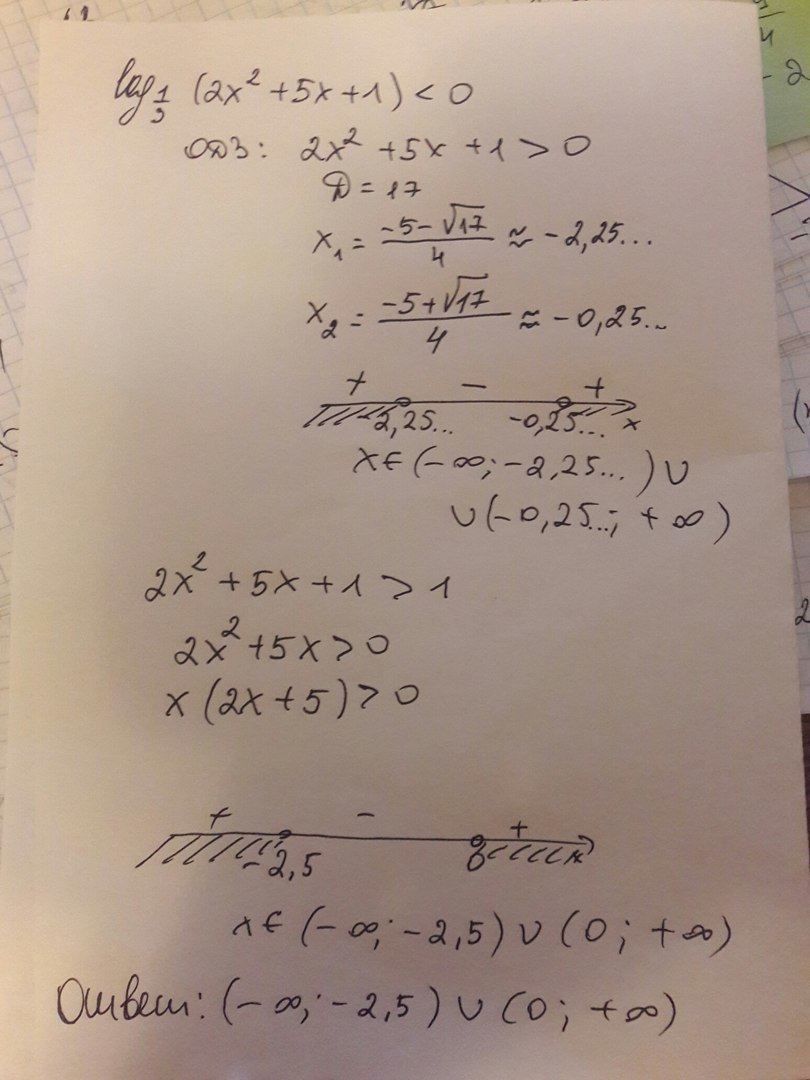 log_{1/3} (2x² + 5x + 1) < 0
ОДЗ: 2x² + 5x + 1 > 0
D = 17
x₁ = (-5-√17)/4 ≈ -2,25...
x₂ = (-5+√17)/4 ≈ -0,25...
+ - +
-2,25... -0,25... x
x ∈ (-∞; -2,25...) ∪
∪ (-0,25...; +∞)
2x² + 5x + 1 > 1
2x² + 5x > 0
x (2x + 5) > 0
+ - +
-2,5 0 x
x ∈ (-∞; -2,5) ∪ (0; +∞)
Ответ: (-∞; -2,5) ∪ (0; +∞)